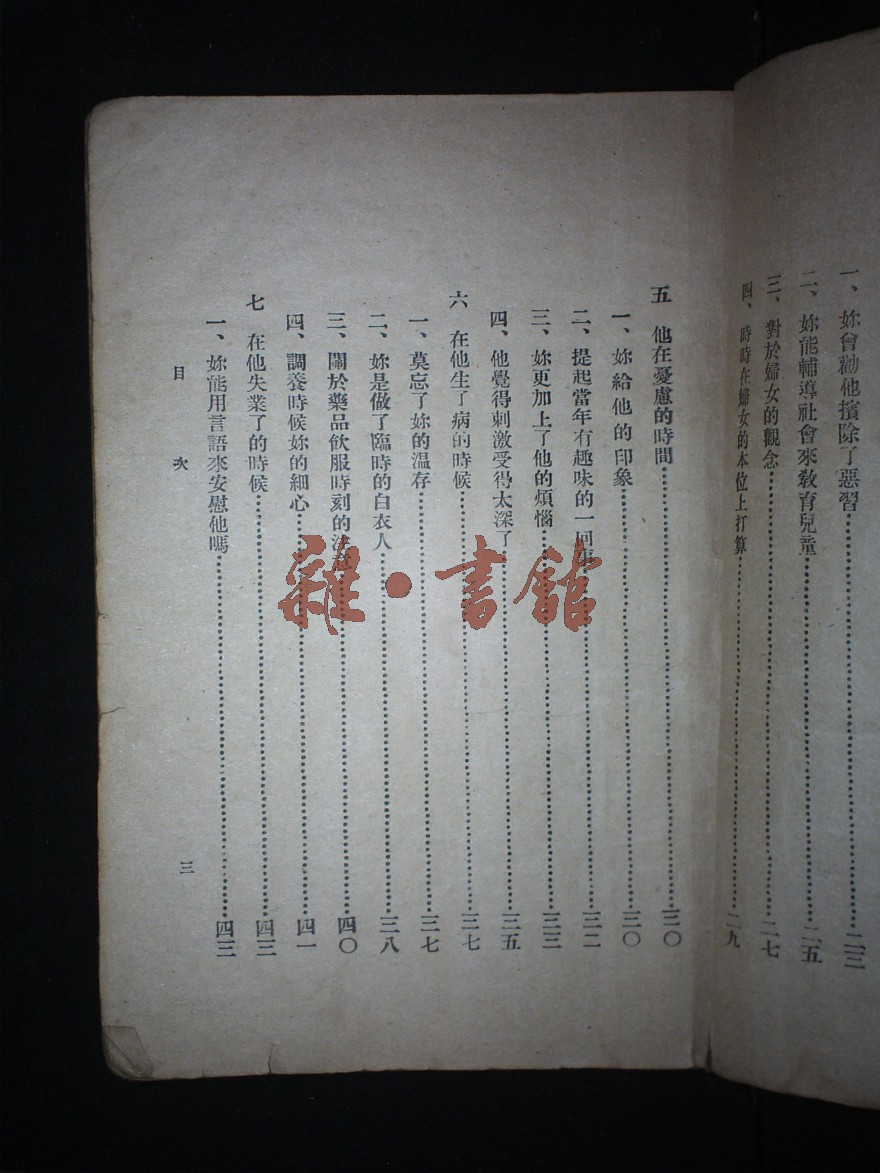 一、妳曾勸他擯除了惡習……二三
二、妳能輔導社會來敎育兒童……二五
三、對於婦女的觀念……二七
四、時時在婦女的本位上打算……二九
五　他在憂慮的時間……三〇
一、妳給他的印象……三〇
二、提起當年有趣味的一回事……三二
三、妳更加上了他的煩惱……三三
四、他覺得刺激受得太深了……三五
六　在他生了病的時候……三七
一、莫忘了妳的温存……三七
二、妳是做了臨時的白衣人……三八
三、關於藥品飲服時刻的注意……四〇
四、調養時候妳的細心……四一
七　在他失業了的時候……四三
一、妳能用言語來安慰他嗎……四三
目次
三
雜・書館